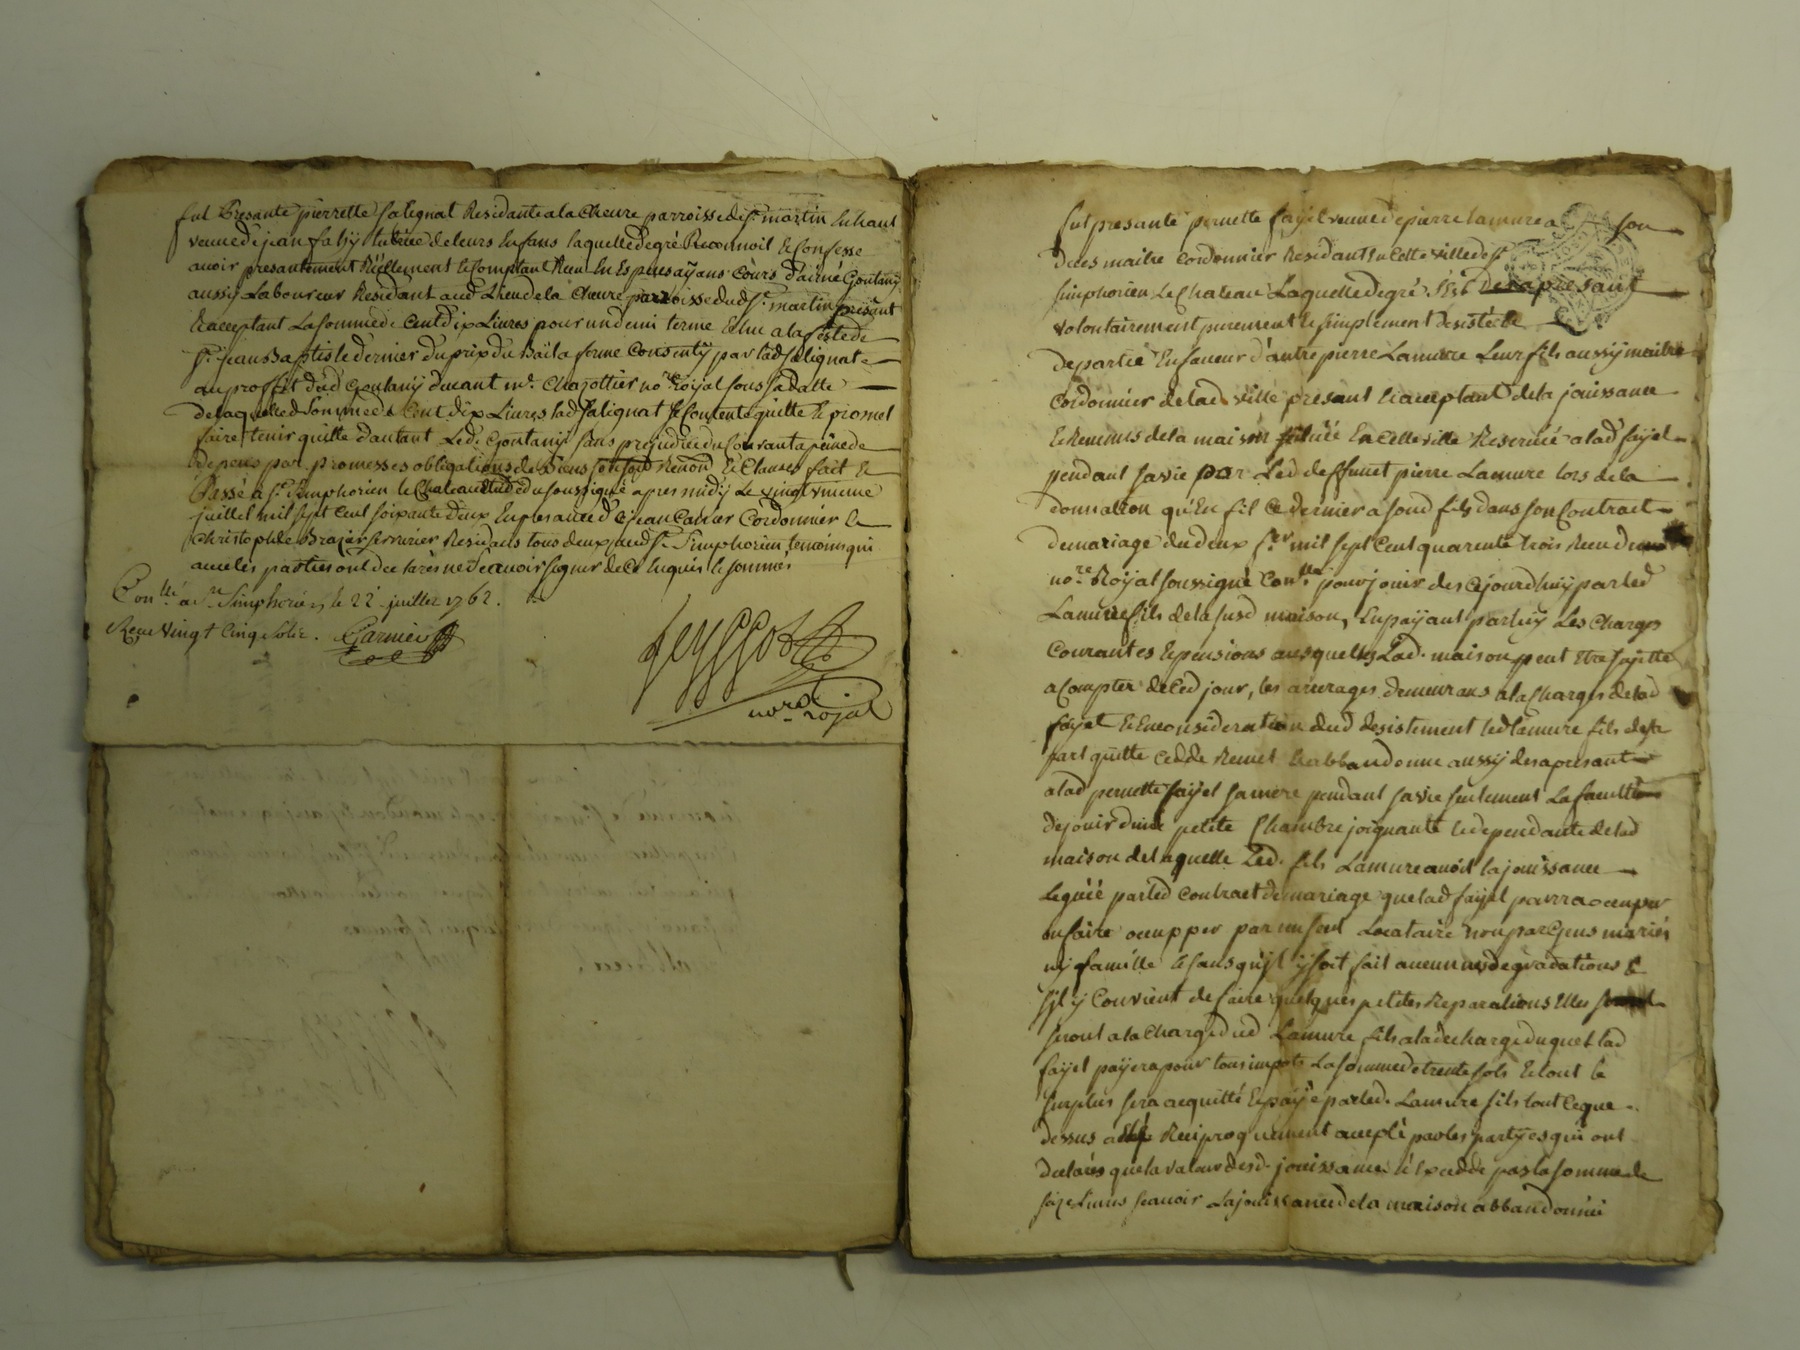 fut Presante pierrette salignat Residante a la Cheure parroisse de st. martin En haut
veuve de jean fahy tutrice de leurs Enfans laquelle de gré Reconnoit & Confesse
avoir presantement Réellement & Comptant Recu En Especes ayans Cours d'aimé Goutany
aussy Laboureur Residant aud. Lieu de la Cheure parroisse dud. st. martin présant
& acceptant La somme de Cent dix Livres pour un demi terme Echu a la feste de
st. jean Baptiste dernier du prix du Bail a ferme Consenty par lad. salignat
au proffit dud. Goutany devant me. Chazottier nore. Royal sous sa datte
de laquelle Somme de Cent dix Livres lad. salignat se Contente quitte & promet
faire tenir quitte d'autant Led. Goutany sans prejudice du Courant a peine de
depens par promesses obligations de Biens Renond. & Clauses fait &
Passé a st. simphorien le Chateau Etude du soussigné apres midy Le vingt unieme
juillet mil sept Cent soixante deux En presance de jean Carier Cordonnier &
Christophle Brajer serrurier Residans tous deux aud. st. simphorien temoins qui
avec les parties ont declarés ne scavoir signer de ce Enquis & sommés
Conllé a st. Simphorien le 22 juillet 1762.
Recu Vingt Cinq Sols. Garnier
nore. royal
fut presante pernette fayel veuve de pierre Lamure a son
deces maitre Cordonnier Residant En Cette ville de st.
simphorien Le Chateau Laquelle de gré s'est des a presant
volontairement purement & simplement desistée &
departie En faveur d'autre pierre Lamure Leur fils aussy maitre
Cordonnier de lad. ville presant & acceptant de la jouissance
& Revenus de la maison située En Cette ville Reservée a lad. fayel
pendant sa vie par Led. deffunct pierre Lamure lors de la
donnation qu'En fit Ce dernier a sond. fils dans son Contract
de mariage du deux mil sept Cent quarente trois Recu du
nore. Royal soussigné Conllé pour jouir des Cejourdhuy par led.
Lamure fils de la susd. maison, En payant par luy Les Charges
Courantes & pensions auxquelles Lad. maison peut Etre sujette
a Compter de Ced. jour, les arrerages demeurans a la Charge de lad.
fayet & En Consideration dud. desistement led. Lamure fils de sa
part quitte Cedde Remet & abbandonne aussy des a present
a lad. pernette fayel sa mere pendant sa vie seulement La faculté
de jouir d'une petite Chambre joignante & dependante de lad.
maison de laquelle Led. fils Lamure avoit la jouissance
Leguée par led. Contract de mariage que lad. fayel pourra occuper
ou faire occupper par un seul Locataire non par Gens mariés
ny famille & sans qu'jl y soit fait aucunes degradations &
s'jl y Convient de faire quelques petites Reparations Elles
seront a la Charge dud. Lamure fils a la decharge duquel lad.
fayel payera pour tous impots La somme de trente sols & tout le
surplus sera acquitté & payé par led. Lamure fils tout Ceque
dessus a Reciproquement accepté par les partyes qui ont
declarés que la valeur desd. jouissances n'Excedde pas la somme de
seize Livres scavoir La jouissance de la maison abbandonnée